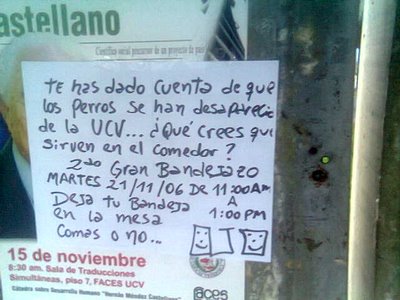 astellano
Científico social precursor de un proyecto de país
Te has dado cuenta de que
los perros se han desaparecio
de la UCV... ¿Qué crees que
sirven en el comedor?
2do Gran Bandejazo
MARTES 21/11/06 DE 11:00 AM
A
Deja tu Bandeja 1:00 PM
en la mesa
Comas o no...
15 de noviembre
8:30 am. Sala de Traducciones
Simultáneas, piso 7, FACES UCV
Cátedra sobre Desarrollo Humano "Hernán Méndez Castellano"
faces